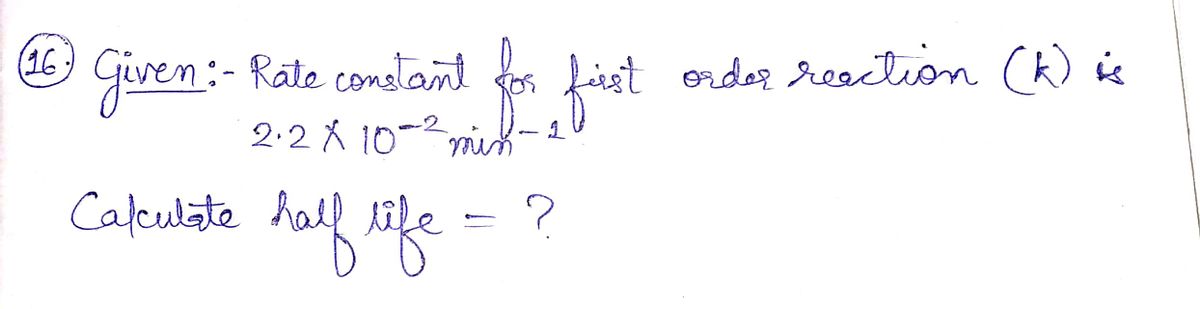 16. Given:- Rate constant for first order reaction (k) is
2.2 X 10-2 min-1
Calculate half life = ?